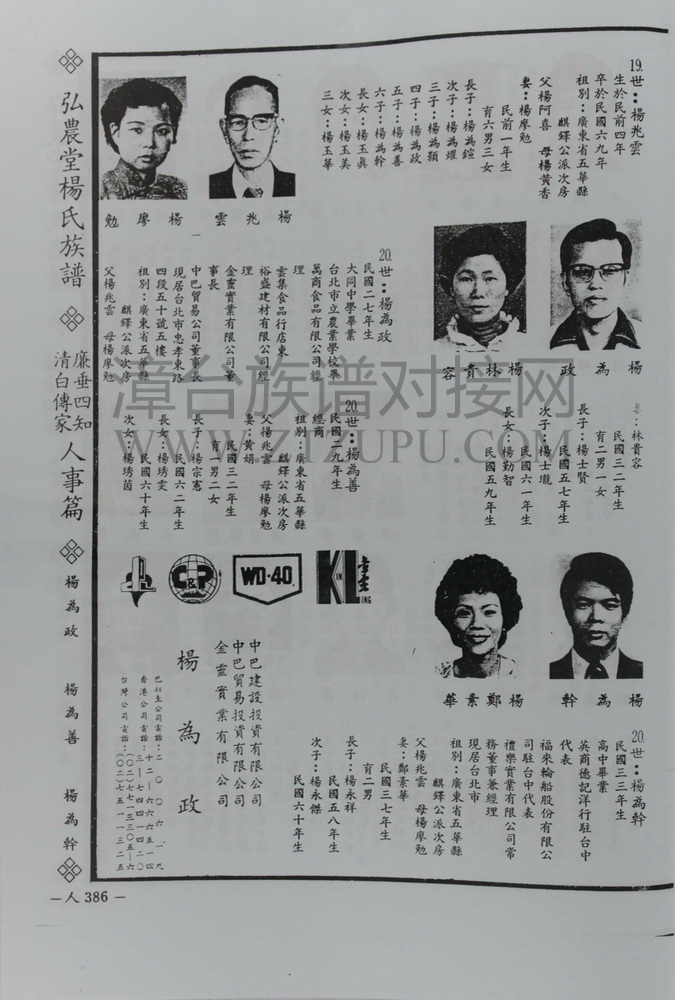 弘農堂楊氏族譜
廉垂四知
清白傳家
人事篇
楊為政
楊為善
楊為幹
19.世：楊兆雲
生於民前四年
卒於民國六九年
祖別：廣東省五華縣
麒鐸公派次房
父楊阿喜　母楊黃香
妻：楊廖勉
民前一年生
有六男三女
長子：楊為鎧
次子：楊為燿
三子：楊為穎
四子：楊為政
五子：楊為善
六子：楊為幹
長女：楊玉真
次女：楊玉美
三女：楊玉華
楊兆雲
楊廖勉
20.世：楊為政
民國二七年生
大同中學畢業
台北市立農業學校畢
萬商食品有限公司經
理
雲集食品行店東
裕盛建材有限公司經
理
金靈實業有限公司董
事長
中巴貿易公司董事長
現居台北市忠孝東路
四段五十號五樓
祖別：廣東省五華縣
麒鐸公派次房
父楊兆雲　母楊廖勉
楊為政
楊林貴容
妻：林貴容
民國三二年生
育二男一女
長子：楊士賢
民國五七年生
次子：楊士瓏
民國六一年生
長女：楊勤智
民國五九年生
20.世：楊為善
民國二九年生
經商
祖別：廣東省五華縣
麒鐸公派次房
父楊兆雲　母楊廖勉
妻：黃娟
民國三二年生
育一男二女
長子：楊宗憲
民國六二年生
長女：楊琇雯
民國六十年生
次女：楊琇茵
楊為幹
楊鄭素華
20.世：楊為幹
民國三三年生
高中畢業
英商德記洋行駐台中
代表
福來輪船股份有限公
司駐台中代表
禮樂實業有限公司常
務董事兼經理
現居台北市
祖別：廣東省五華縣
麒鐸公派次房
父楊兆雲　母楊廖勉
妻：鄭素華
民國三七年生
育二男
長子：楊永祥
民國五八年生
次子：楊永傑
民國六十年生
C&P
WD-40
KL
KIN
LING
中巴建設投資有限公司
中巴貿易投資有限公司
金靈實業有限公司
楊為政
－人 386－
漳台族谱对接网
WWW.ZTZUPU.COM